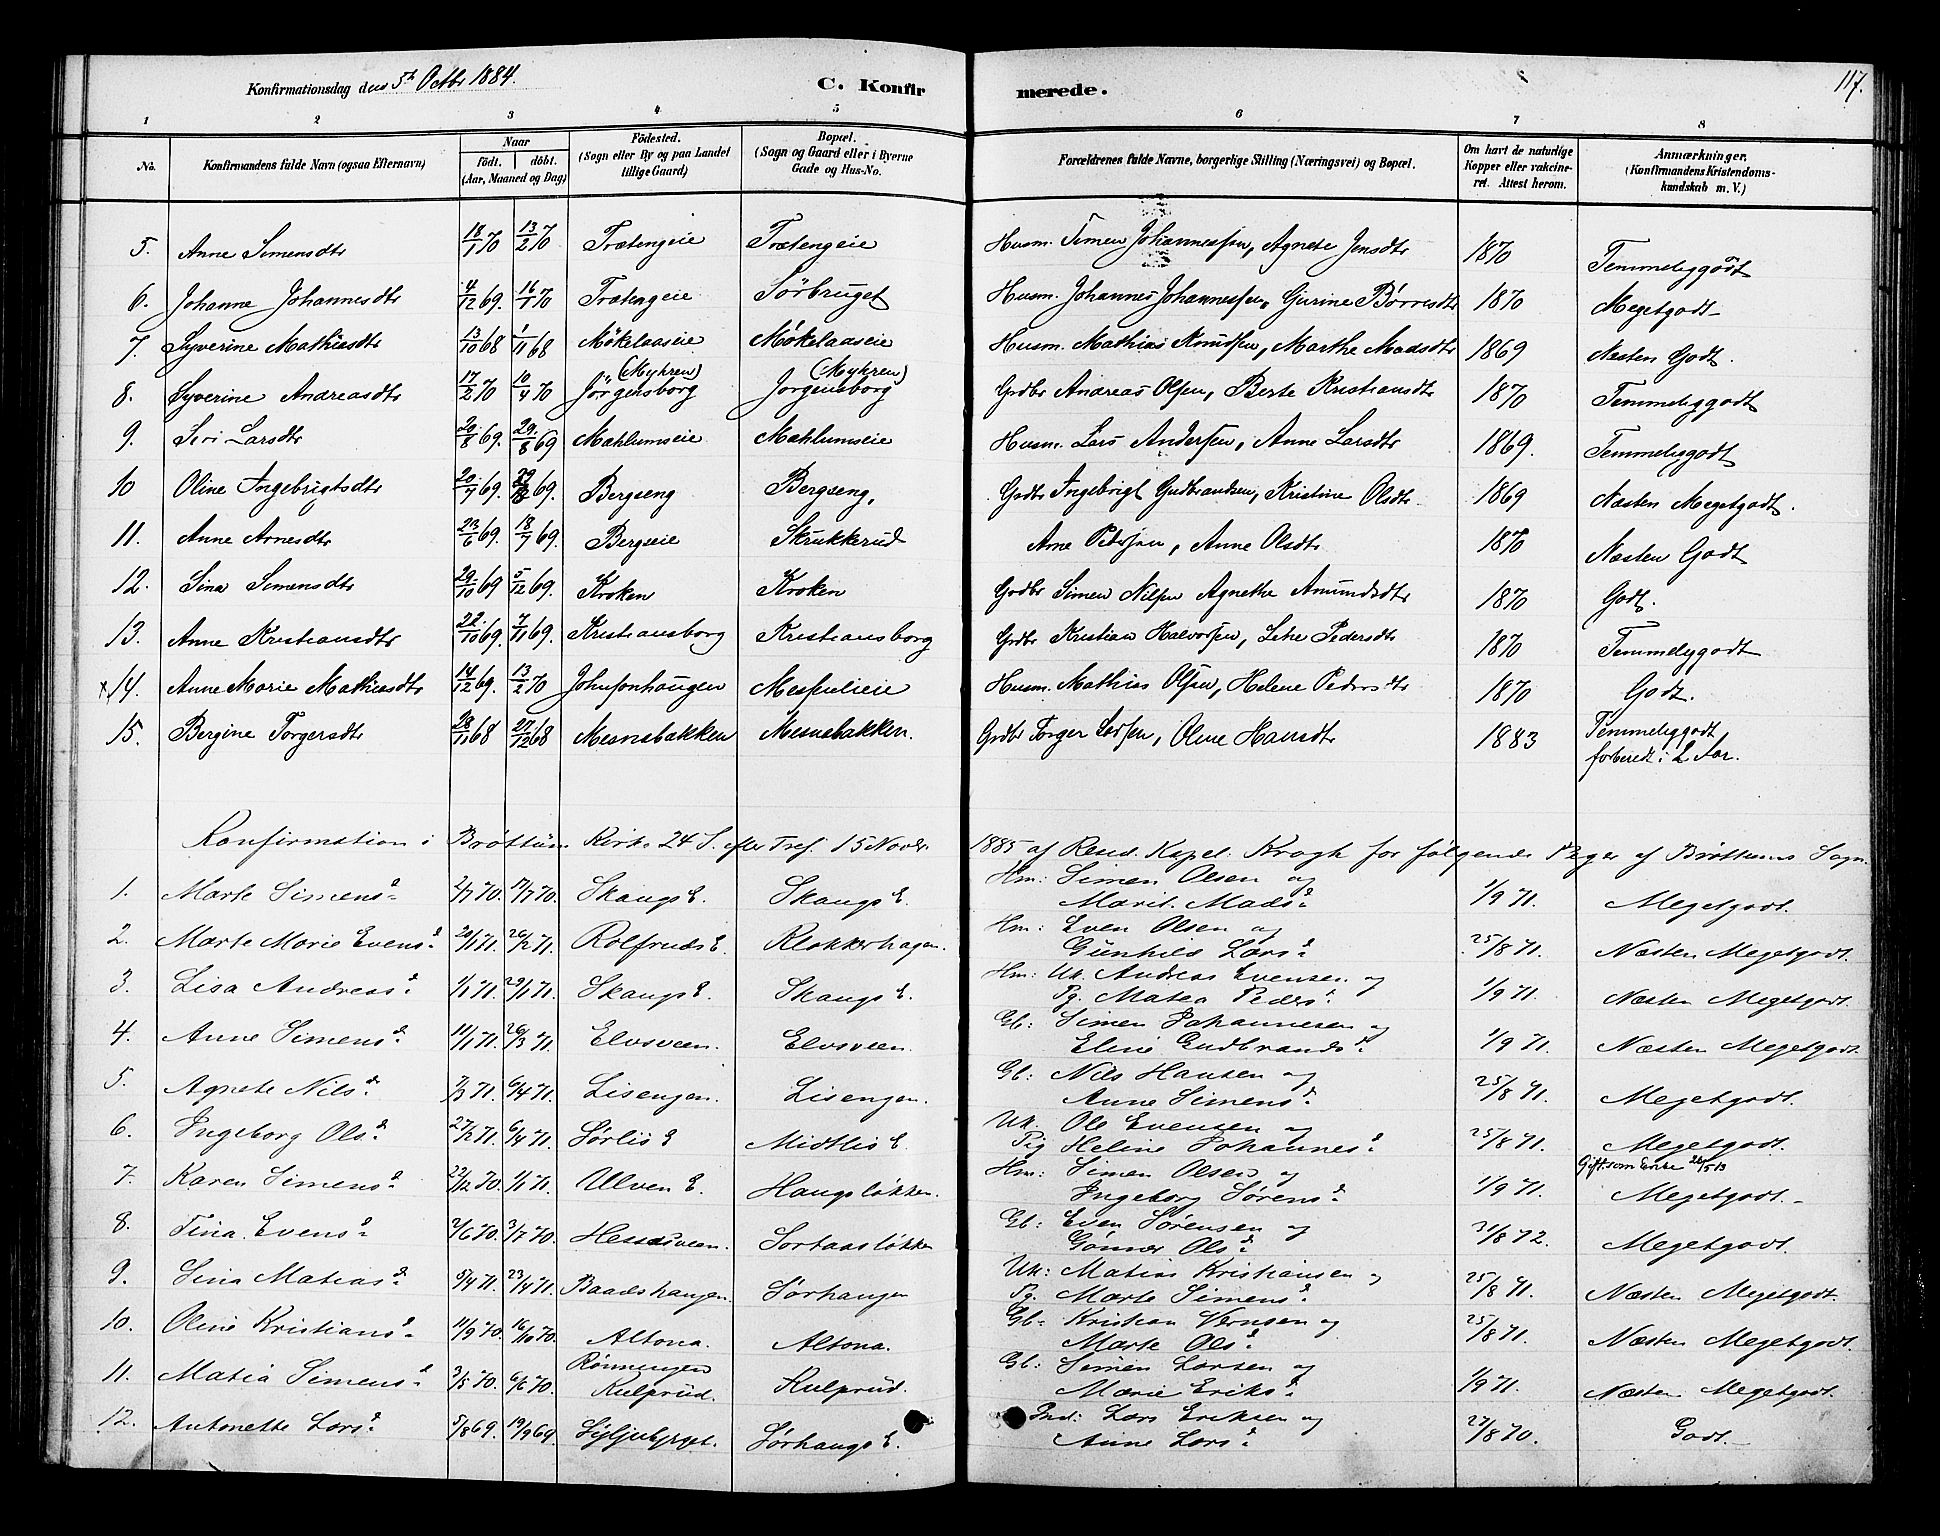 117.
Konfirmationsdag den 5te Octbr 1884. C. Konfirmerede.
1 2 3 4 5 6 7 8
No. Konfirmandens fulde Navn (ogsaa Efternavn) Naar födt. döbt. (Aar, Maaned og Dag) Födested. (Sogn eller By og paa Landet tillige Gaard) Bopæl. (Sogn og Gaard eller i Byerne Gade og Hus-No. Forældrenes fulde Navne, borgerlige Stilling (Næringsvei) og Bopæl. Om havt de naturlige Kopper eller vakcineret. Attest herom. Anmærkninger. (Konfirmandens Kristendomskundskab m. V.)
5. Anne Simensdtr 18/1 70 13/2 70 Trætengeie Trætengeie Husm. Simen Johannessen, Agnete Jensdtr 1870 Temmeliggodt
6. Johanne Johannesdtr 4/12 69. 16/1 70 Trætengeie Sörbruget Husm. Johannes Johannessen, Gurine Börresdtr 1870 Megetgodt
7. Syverine Mathiasdtr 13/10 68 1/11 68 Mökelaaseie Mökelaaseie Husm. Mathias Knudsen, Marthe Madsdtr 1869 Næsten Godt.
8. Syverine Andreasdtr 17/2 70 10/4 70 Jörgensborg (Myhren) Jorgensborg (Myhren) Grdbr Andreas Olsen, Berte Kristiansdtr 1870 Temmeliggodt
9. Siri Larsdtr 20/8 69. 29/8 69 Mahlumseie Mahlumseie Husm. Lars Andersen, Anne Larsdtr 1869. Temmeliggodt
10 Oline Ingebrigtsdtr 20/7 69. 69. Bergseng Bergseng, Grdbr Ingebrigt Gudbrandsen, Kristine Olsdtr 1869 Næsten Megetgodt.
11. Anne Arnesdtr 23/6 69. 18/7 69. Bergseie Skrukkerud Arne Pedersen, Anne Olsdtr 1870 Næsten Godt
12. Sina Simensdtr 29/10 69 5/12 69. Kroken Kroken Grdbr Simen Nilsen Agnethe Amundsdtr 1870 Godt.
13. Anne Kristiansdtr 22/10 69. 7/11 69. Kristiansborg Kristiansborg Grdbr Kristian Halvorsen, Lene Pedersdtr 1870 Temmeliggodt
x14. Anne Marie Mathiasdtr 14/12 69. 13/2 70 Johnsonhaugen Mesnlieie Husm. Mathias Olsen, Helene Pedersdtr 1870 Godt.
15. Bergine Torgersdtr 28/11 68 27/12 68 Mesnebakken Mesnebakken. Grdbr Torger Larsen, Oline Hansdtr 1883 Temmeliggodt
forberedt i 2 Aar.
Konfirmation i Bröttum Kirke 24 S. efter Tref. 15 Novbr. 1885 af Resid. Kapel. Krogh for følgende Piger af Bröttums Sogn
1. Marte Simensd. 2/7 70. 17/7 70. Skaugs E. Skaugs E. Hm: Simen Olsen og
Marit Madsd. 1/9 71. Megetgodt.
2. Marte Marie Evensd. 20/1 71. 26/2 71. Rolfruds E. Klokkerhagen. Hm: Even Olsen og
Gunhild Larsd. 25/8 71. Næsten Megetgodt.
3. Lisa Andreasd. 1/1 71. 29/1 71. Skaugs E. Skaugs E. Hm: Uk. Andreas Evensen og
Pg. Matea Pedersd. 1/9 71. Næsten Megetgodt.
4. Anne Simensd. 11/1 71. 26/3 71. Elvsveen. Elvsveen. Gb: Simen Johannesen og
Eline Gudbrandsd. 1/9 71. Næsten Megetgodt.
5. Agnete Nilsd. 7/3 71. 6/4 71. Lisengen. Lisengen. Gb: Nils Hansen og
Anne Simensd. 25/8 71. Megetgodt.
6. Ingeborg Olsd. 27/2 71. 6/4 71. Sørlis E Midtlis E. Uk. Ole Evensen og
Pig Heline Johannesd. 25/8 71. Megetgodt.
7. Karen Simensd. 22/12 70. 1/1 71. Ulven E. Haugsløkken. Hm: Simen Olsen og
Ingeborg Sørensd. 1/9 71. Gift som Enke 26/5 13
Megetgodt.
8. Tina Evensd. 2/6 70. 3/7 70. Hessesveen. Sortaasløkken Gb: Even Sørensen og
Olsd. 31/8 72. Megetgodt.
9. Sina Matiasd. 5/4 71. 23/4 71. Baadshaugen. Sørhaugen Uk: Matias Kristiansen og
Pg. Marte Simensd. 25/8 71. Næsten Megetgodt.
10. Oline Kristiansd. 11/9 70. 16/10 70. Altona. Altona. Gb: Kristian Evensen og
Marte Olsd. 25/8 71. Næsten Megetgodt.
11. Matia Simensd. 3/5 70. 6/6 70. Rönningen
Kulprud. Kulprud. Gb: Simen Larsen og
Marie Eriksd. 1/9 71. Næsten Megetgodt.
12. Antonette Larsd. 5/8 69. 19/9 69. Sørhaugs E. Ind: Lars Eriksen og
Anne Larsd. 27/8 70. Godt.